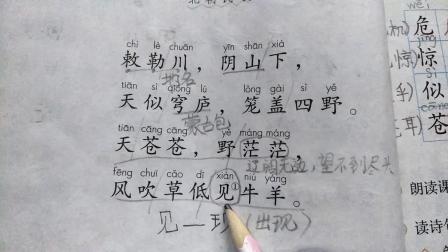 chì lè chuān yīn shān xià
敕勒川，阴山下，
地名
tiān sì qióng lú lǒng gài sì yě
天似穹庐，笼盖四野。
蒙古包
tiān cāng cāng yě máng máng
天苍苍，野茫茫，
辽阔无边，望不到尽头
fēng chuī cǎo dī xiàn niú yáng
风吹草低见①牛羊。
见—现（出现）
wēi
危
jīng
惊
sì
似
苍
朗读课